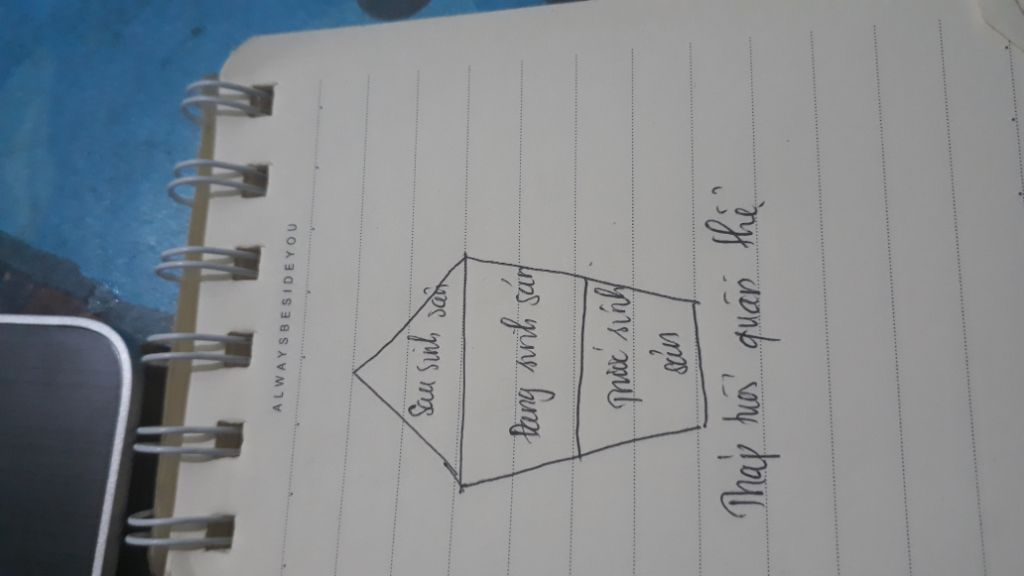 ALWAYSBESIDEYOU
Sau sinh sản
Đang sinh sản
Trước sinh
sản
Tháp tuổi quần thể